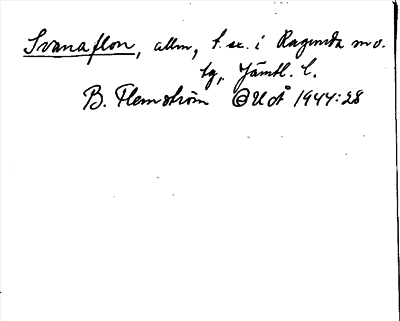 Svanaflon, allm, t. ex. i Ragunda m o.
tg, Jämtl. l.
B. Flemström OUÅ 1944:28